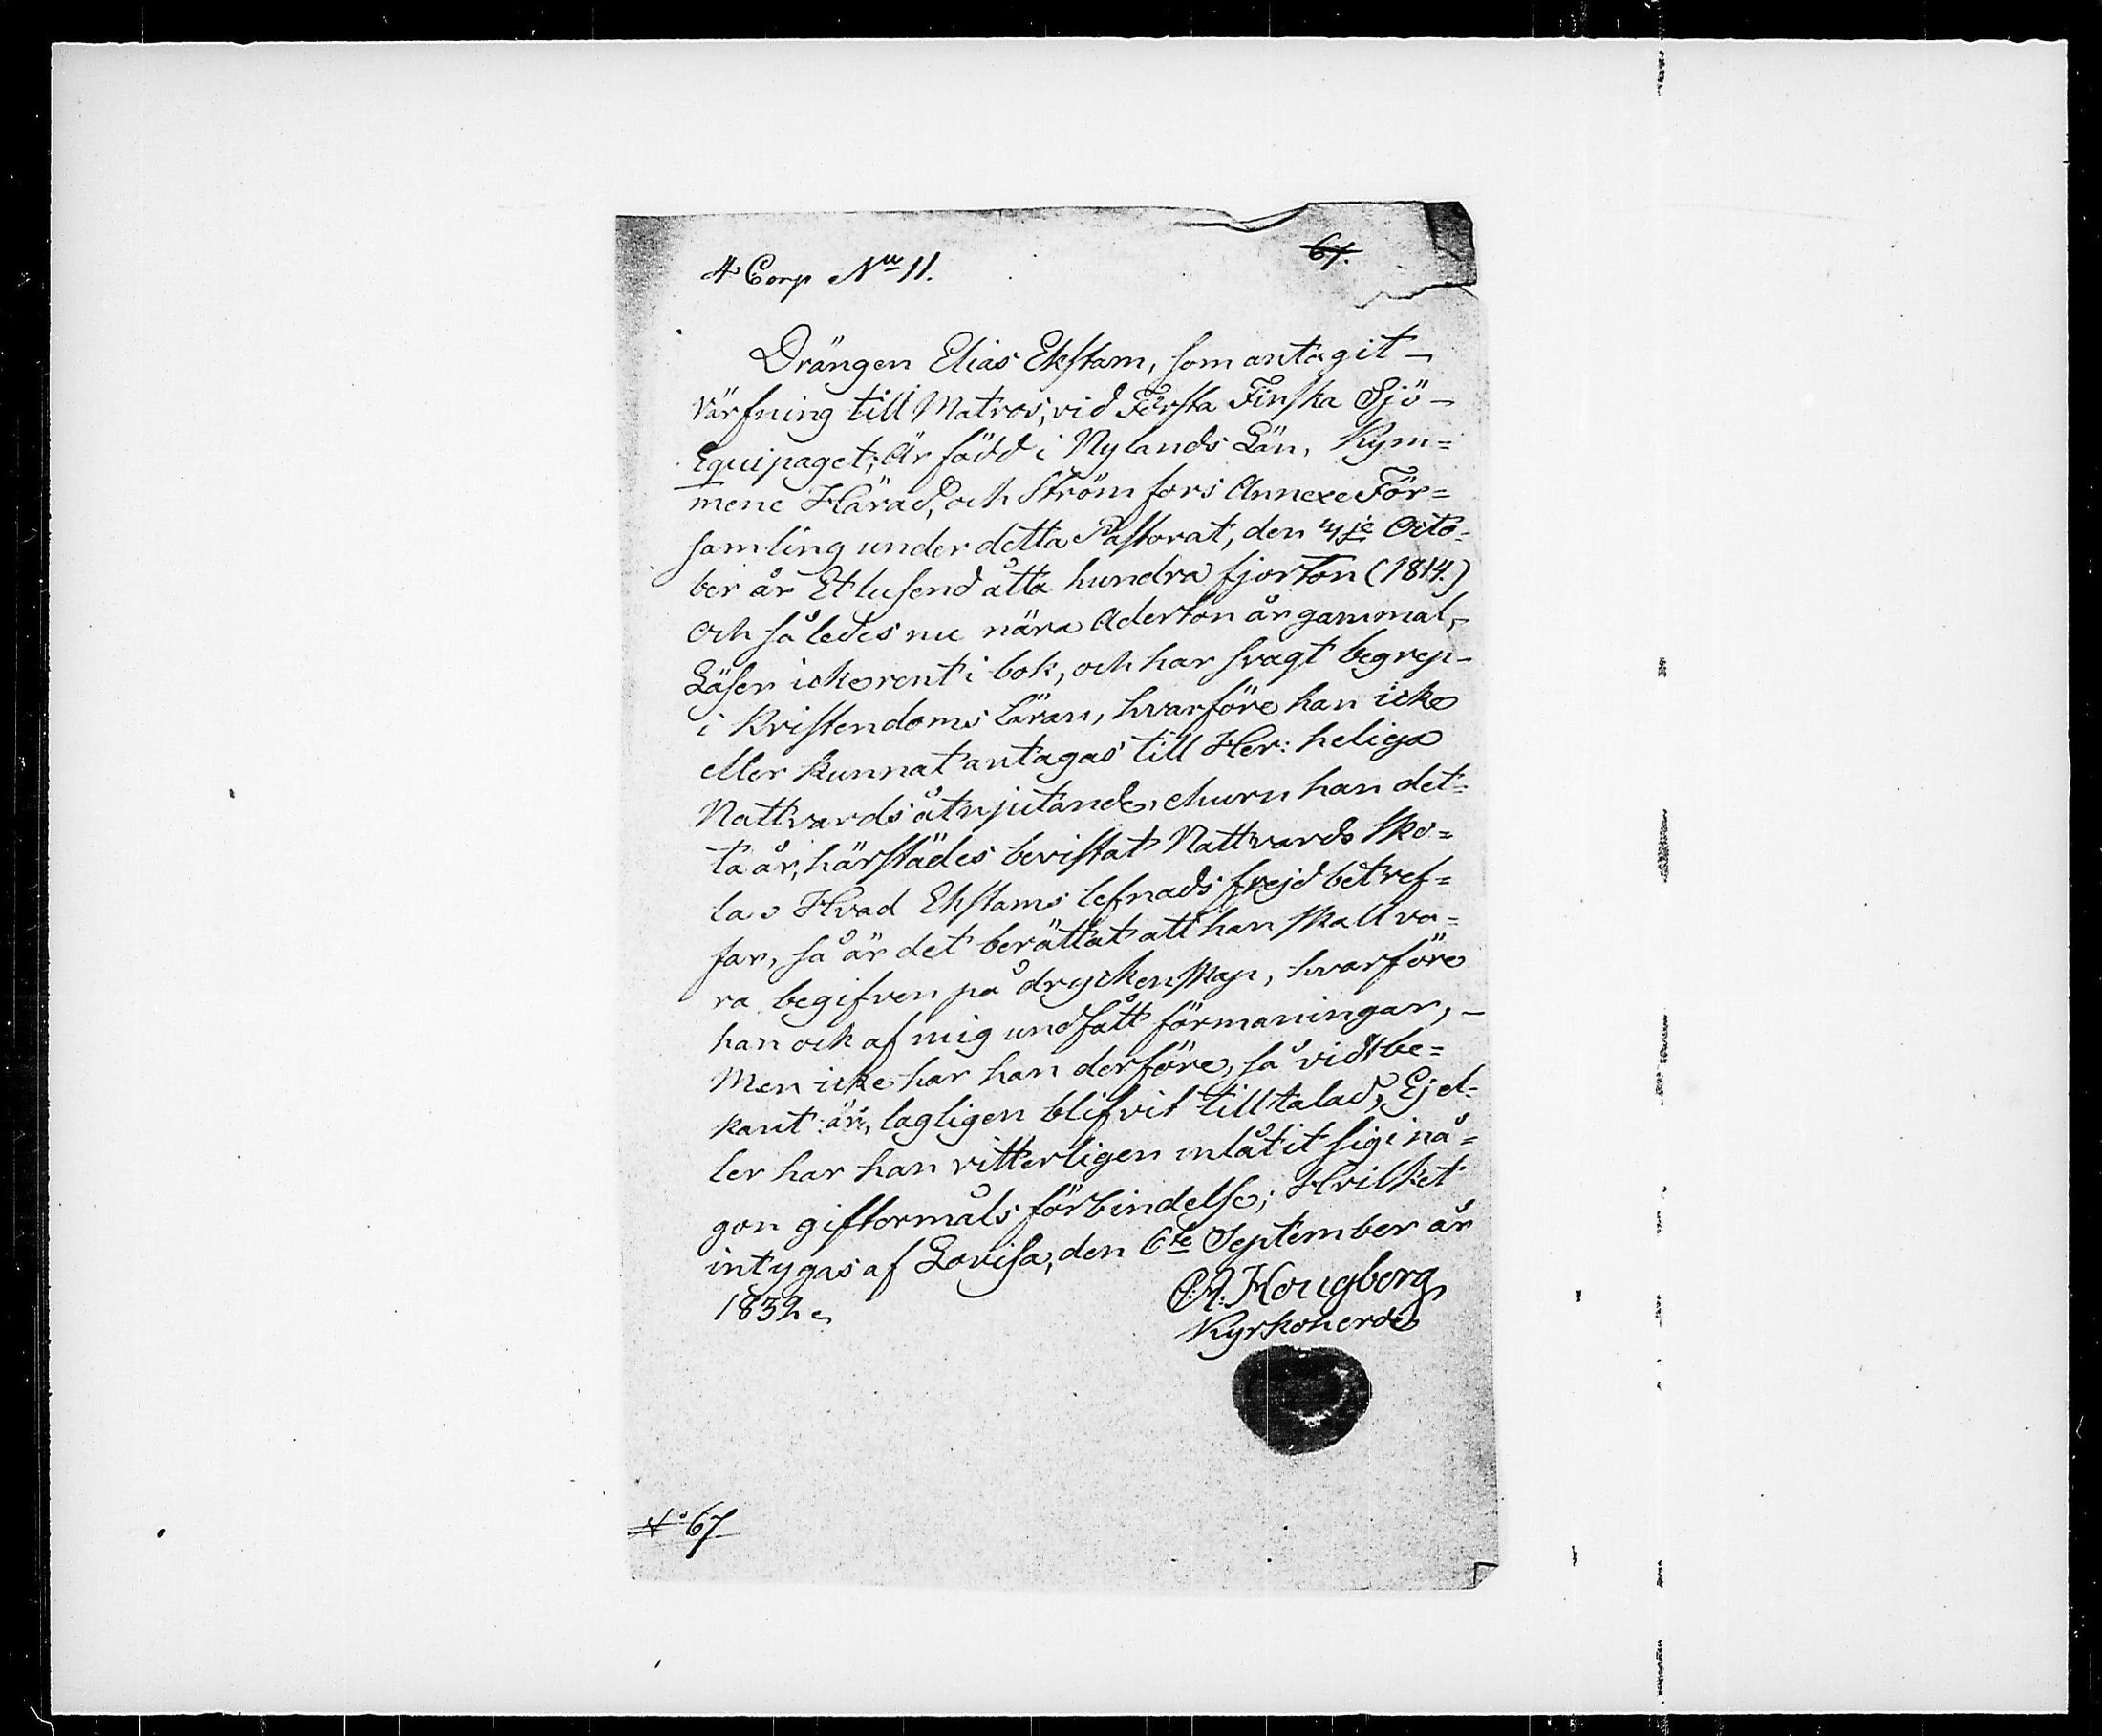 4 Corp N:o 11.
67.
Drängen Elias Ekstam, som antagit –
värfning till Matros, vid Första Finska Sjö –
Equipaget; Är född i Nylands Län, Kym=
mene Härad, och Strömfors Annexe För=
samling under detta Pastorat, den Octo=
ber år Ettusend åtta hundra fjorton (1814.)
och således nu nära Aderton år gammal, –
Läser icke rent i bok, och har svagt begrep –
i Kristendoms läran, hvarföre han icke
eller kunnat antagas till Her: heliga
Nattvards åtnjutande, ehuru han det=
ta år, härstädes bevistat Nattvards Sko=
la. Hvad Ekstams lefnads frejd betref=
far, så är det berättat att han skall va=
ra begifven på dryckenskap, hvarföre
han ock af mig undfått förmaningar, –
Men icke har han derföre, så vidt be=
kant är, lagligen blifvit tilltalad, Ej el=
ler har han vitterligen inlåtit sig i nå=
gon giftormåls förbindelse; Hvilket
intygas af Lovisa, den 6te September år
1832.
Kyrkoherde
N:o 67